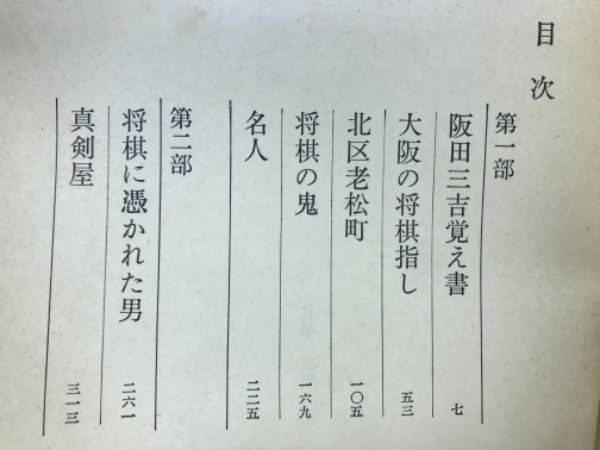 目次
第一部
阪田三吉覚え書 七
大阪の将棋指し 五三
北区老松町 一〇五
将棋の鬼 一六九
名人 二二五
第二部
将棋に憑かれた男 二六一
真剣屋 三一三